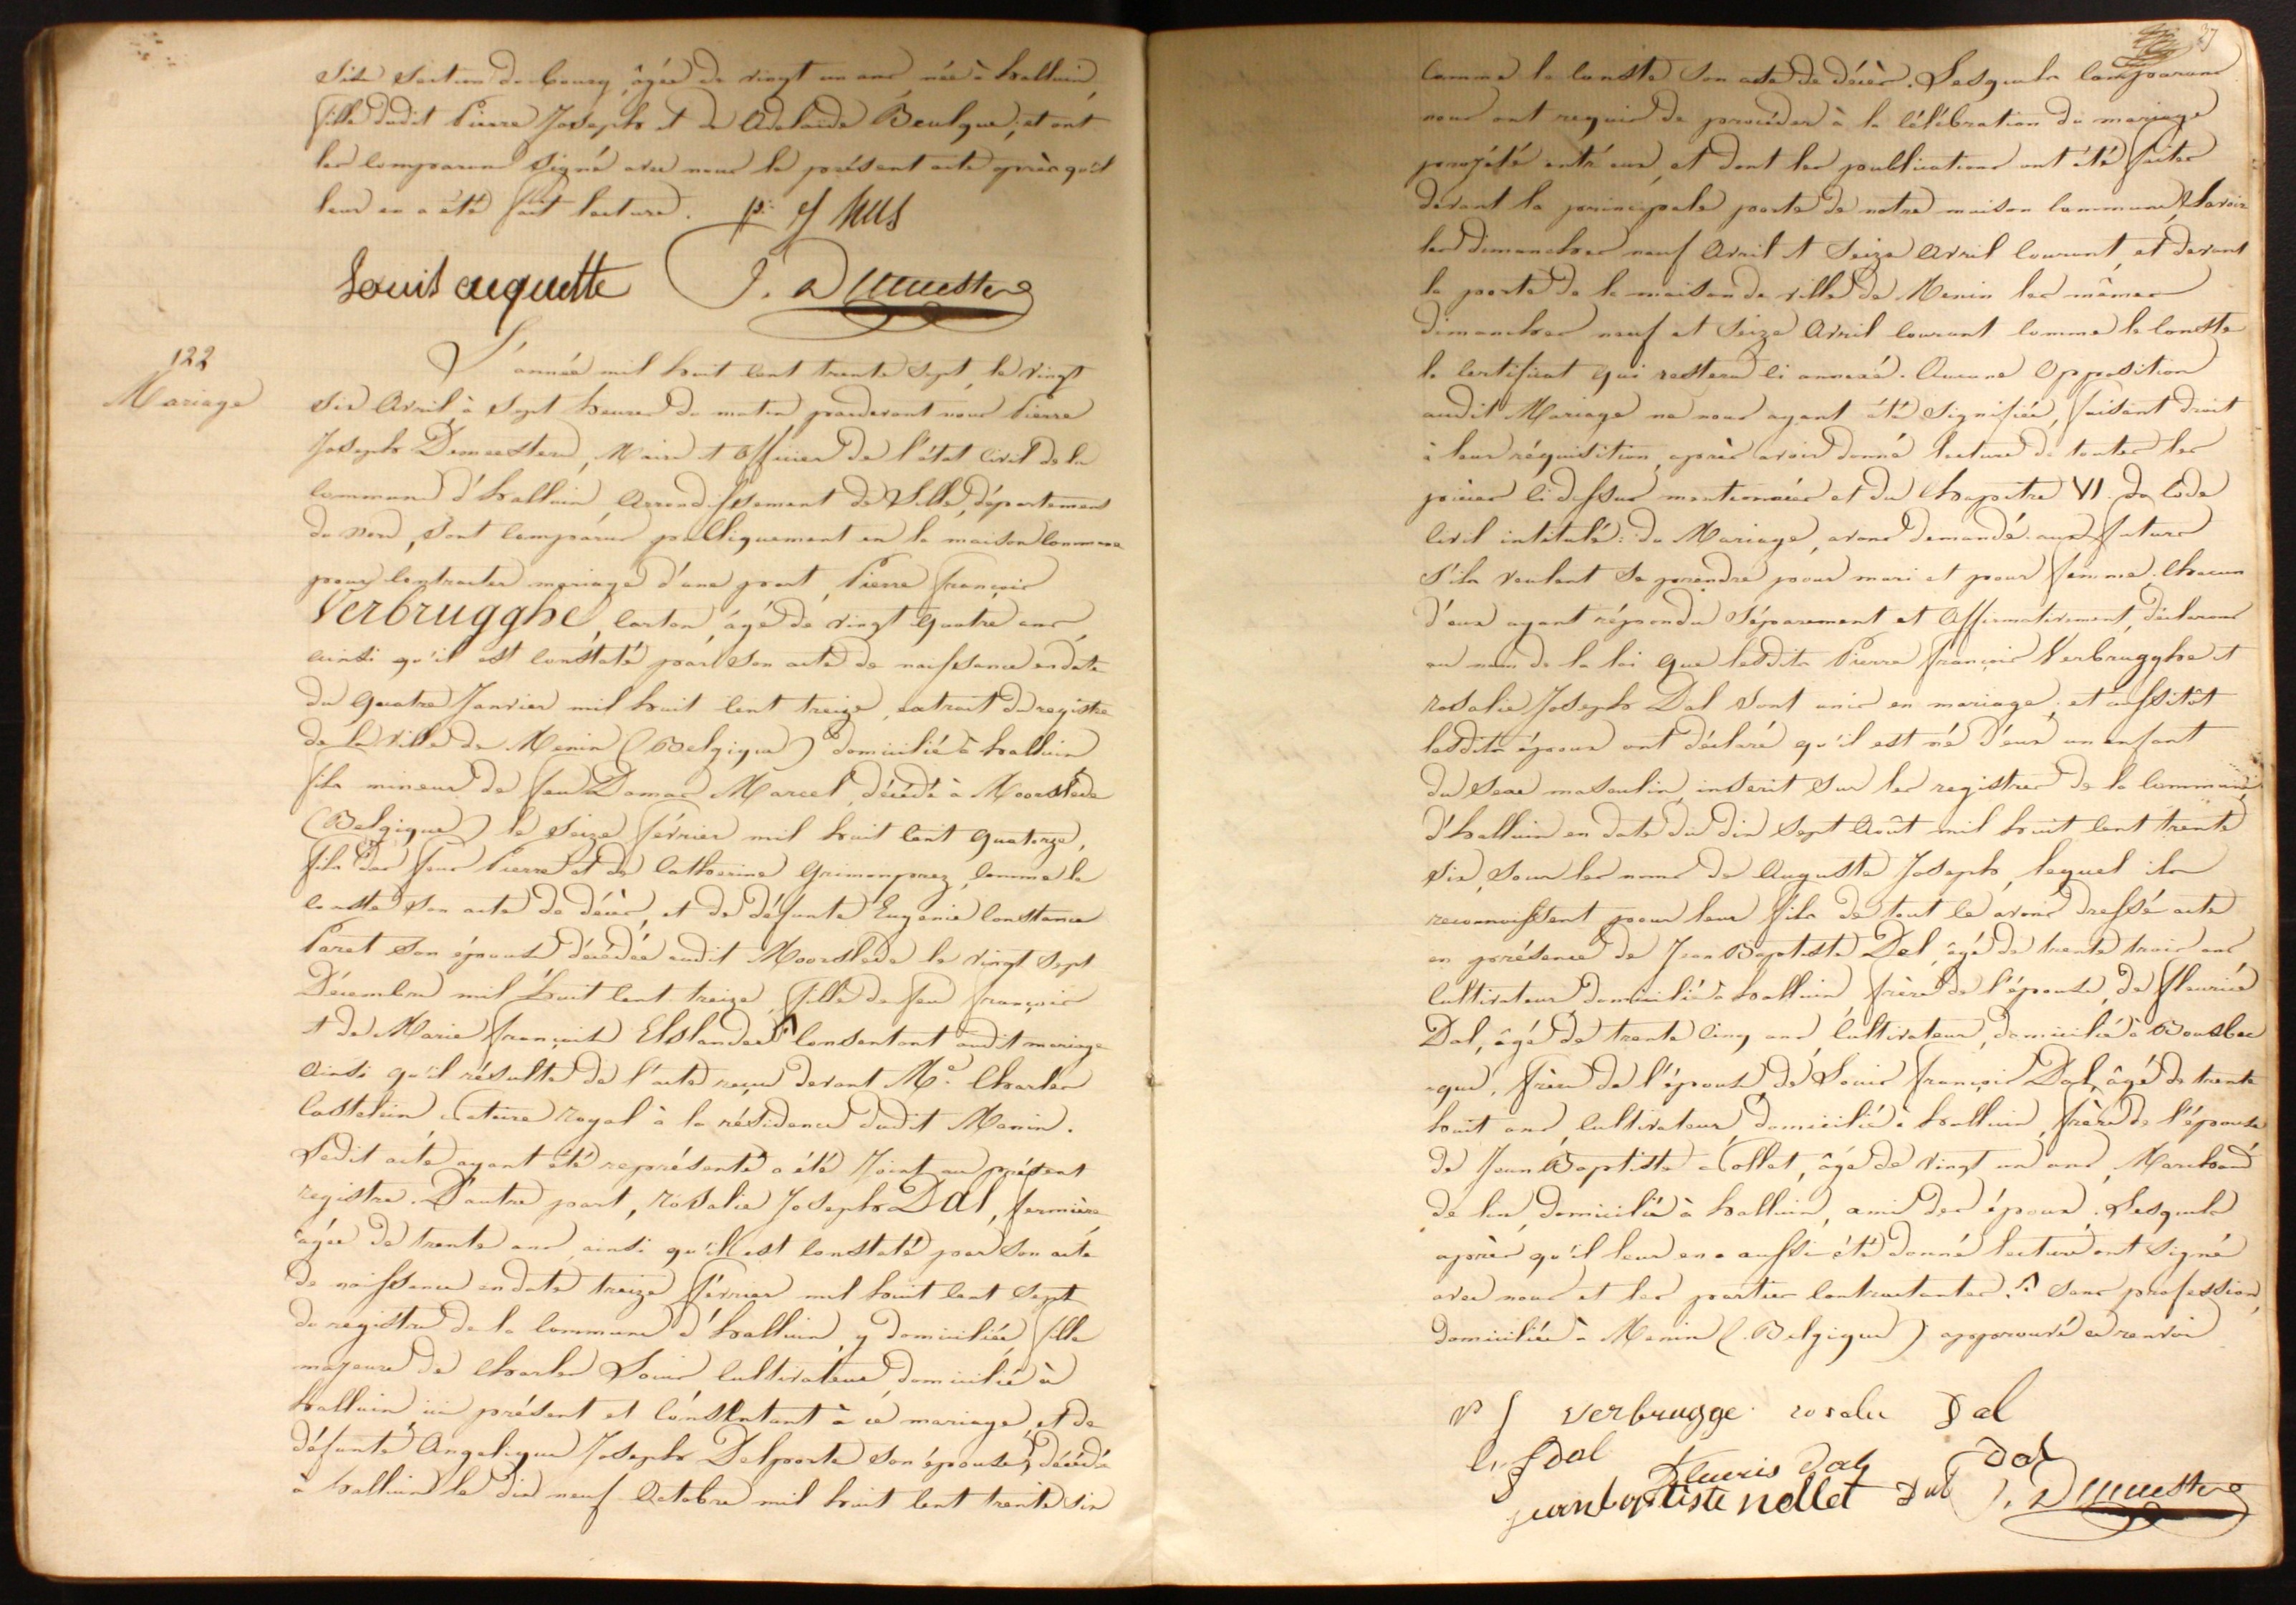 sise section de Coucy, âgée de vingt un ans, née à halluin,
fille dudit Pierre Joseph et de Adelaïde Beulque; et ont
les comparans signé avec nous le présent acte après qu'il
leur en a été fait lecture. p: f hus
Louis cuquette J. Demeestere
122
Mariage
L'année mil huit cent trente sept, le vingt
six Avril à sept heures du matin pardevant nous Pierre
Joseph Demeestere, Maire et officier de l'état civil de la
Commune d'halluin, Arrondissement de Lille, département
du Nord, sont comparus publiquement en la maison commune
pour contracter mariage d'une part, Pierre françois
Verbrugghe, carton, âgé de vingt quatre ans,
ainsi qu'il est constaté par son acte de naissance en date
du quatre Janvier mil huit cent treize, extrait du registre
de la Ville de Menin (Belgique) domicilié à halluin
fils mineur de feu Damas Marcel, décédé à Moorslede
(Belgique) le seize février mil huit cent quatorze,
fils des feus Pierre et de Catherine Grimonprez, comme le
conste son acte de décès, et de défunte Eugénie Constance
Paret son épouse décédée audit Moorslede le vingt sept
Décembre mil huit cent treize, fille de feu françois
et de Marie françoise Elslander ^ consentant audit mariage
ainsi qu'il résulte de l'acte reçu devant Me. Charles
Castelein, Notaire royal à la résidence dudit Menin.
Ledit acte ayant été représenté a été joint au présent
registre. D'autre part, rosalie Joseph Dal, fermière
âgée de trente ans, ainsi qu'il est constaté par son acte
de naissance en date treize février mil huit cent sept
du registre de la Commune d'halluin, y domiciliée, fille
majeure de Charles Louis cultivateur, domicilié à
halluin, ici présent et consentant à ce mariage, et de
défunte Angelique Joseph Delporte son épouse, décédée
à halluin le dix neuf Octobre mil huit cent trente six
37
comme le conste son acte de décès. Lesquels comparans
nous ont requis de procéder à la célébration du mariage
projété entr'eux, et dont les publications ont été faites
devant la principale porte de notre maison commune, savoir
les dimanches neuf Avril et seize Avril courant, et devant
la porte de la maison de ville de Menin les mêmes
dimanches neuf et seize Avril courant comme le conste
le certificat qui restera ci annexé. Aucune Opposition
audit Mariage ne nous ayant été signifiée, faisant droit
à leur réquisition, après avoir donné lecture de toutes les
pièces ci dessus mentionnées et du Chapitre VI. du Code
Civil intitulé: du Mariage, avons demandé aux futurs
s'ils veulent se prendre pour mari et pour femme. Chacun
d'eux ayant répondu séparement et affirmativement, déclarons
au nom de la loi que lesdits Pierre françois Verbrugghe et
rosalie Joseph Dal sont unis en mariage, et aussitôt
lesdits époux ont déclaré qu'il est né d'eux un enfant
du sexe masculin, inscrit sur les registres de la Commune
d'halluin en date du dix sept Août mil huit cent trente
six, sous les noms de Auguste Joseph, lequel ils
reconnoissent pour leur fils de tout ce avons dressé acte
en présence de Jean Baptiste Dal, âgé de trente trois ans
cultivateur domicilié à halluin, frère de l'épouse, de fleuris
Dal, âgé de trente cinq ans, cultivateur, domicilié à Bousbec
-que, frère de l'épouse, de Louis françois Dal, âgé de trente
huit ans, cultivateur, domicilié à halluin, frère de l'épouse
de Jean Baptiste Nollet, âgé de vingt un ans, Marchand
de lin, domicilié à halluin, ami des époux. Lesquels
après qu'il leur en a aussi été donné lecture ont signé
avec nous et les parties contractantes. ^ sans profession,
domiciliée à Menin (Belgique) approuvé ce renvoi
p f verbrugge rosalie Dal
Dal fleuris dal dal
jean baptiste nollet Dal J. Demeestere